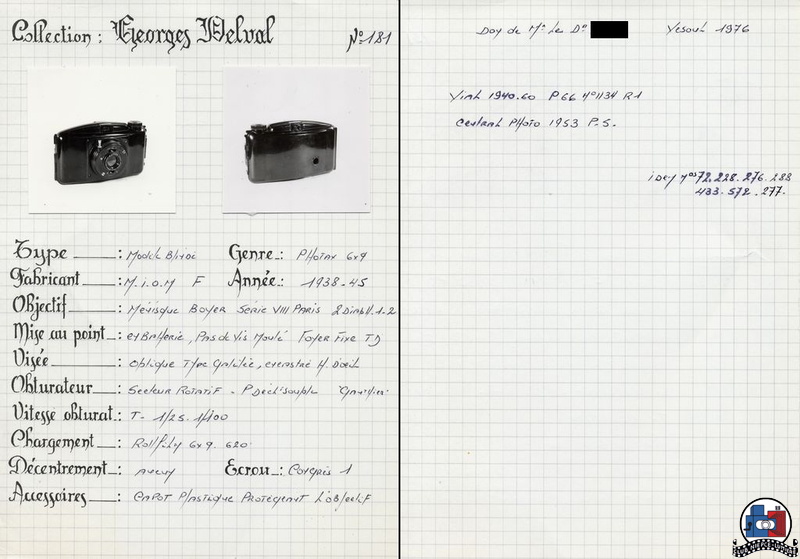 Collection : Georges Delval N° 181
Type : Model Genre : PHoTax 6x9
Fabricant : M.i.o.M F Année : 1938-45
Objectif : Menisque BoyER SéRiE VIII PARiS 2 Diaph. 1.2
Mise au point : et BAtterie, Pas de Vis Moulé FoyER Fixe
Visée : oblique TYpe GAliLée, encastré H. Doeil
Obturateur : Secteur RotatiF - P Décl. Souple
Vitesse obturat. : T - 1/25. 1/100
Chargement : RollFilm 6x9. 620
Décentrement : Aucun Ecrou : Congrés 1
Accessoires : CAPOT PlAStique PRotégeAnt L'objectiF
Don de Mr Le Dr Vesoul 1976
1940.60 P 66 N° 1134 R1
Central PHoto 1953 P.S.
idem Nos 72. 228. 276. 288
433. 572. 277.